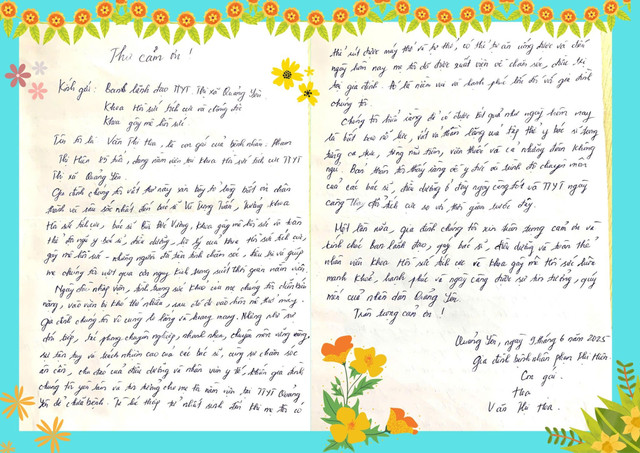 Thư cảm ơn !
Kính gửi: Banh lãnh đạo TTYT Thị xã Quảng Yên
Khoa Hồi sức tích cực và chống độc
Khoa gây mê hồi sức.
Tên tôi là Văn Thị Hoa, là con gái của bệnh nhân: Phan
Thị Hiên 85 tuổi, đang nằm viện tại khoa Hồi sức tích cực TTYT
Thị xã Quảng Yên.
Gia đình chúng tôi viết thư này xin bày tỏ lòng biết ơn chân
thành và sâu sắc nhất đến bác sĩ Vũ Dũng Tuấn, trưởng khoa
Hồi sức tích cực, bác sĩ Bùi Đức Vùng, khoa gây mê hồi sức và toàn
thể đội ngũ y bác sĩ, điều dưỡng, hộ lý của khoa Hồi sức tích cực,
gây mê hồi sức - những người đã tận tình chăm sóc, cứu và giúp
mẹ chúng tôi vượt qua cơn nguy kịch trong suốt thời gian nằm viện.
Ngày đầu nhập viện, tình trạng sức khoẻ của mẹ chúng tôi
nặng, vào viện bị khó thở nhiều, sau đó đi vào hôn mê
Gia đình chúng tôi vô cùng lo lắng và hoang mang. Nhưng nhờ sự
đón tiếp, tác phong chuyên nghiệp, nhanh nhẹn, chuyên môn vững vàng,
sự tận tuỵ và trách nhiệm cao của các bác sĩ, cùng sự chăm sóc
ân cần, chu đáo của điều dưỡng và nhân viên y tế, khiến gia đình
chúng tôi yên tâm và tin tưởng cho mẹ tôi nằm viện tại TTYT Quảng
Yên để chữa bệnh. Từ bé thấp tử nhất sinh đến khi mẹ tôi có
thể rút được máy thở và tự thở, có thể tự ăn uống được và đến
ngày hôm nay mẹ tôi đã được xuất viện về chăm sóc, điều trị
tại gia đình. Đó là niềm vui và hạnh phúc lớn đối với gia đình
chúng tôi.
Chúng tôi hiểu rằng để có được kết quả như ngày hôm nay
là biết bao nỗ lực, vất vả thầm lặng của tập thể y bác sĩ trong
từng ca trực, từng mũi tiêm, viên thuốc và cả những đêm không
ngủ. Bản thân tôi thấy rằng về y đức và trình độ chuyên môn
của các bác sĩ, điều dưỡng ở đây ngày càng tốt và TTYT ngày
càng thay đổi tích cực so với thời gian trước đây.
Một lần nữa, gia đình chúng tôi xin chân trọng cảm ơn và
kính chúc ban lãnh đạo, quý bác sĩ, điều dưỡng và toàn thể
nhân viên khoa Hồi sức tích cực và khoa gây mê Hồi sức luôn
mạnh khoẻ, hạnh phúc và ngày càng được sự tin tưởng, quý
mến của nhân dân Quảng Yên.
Trân trọng cảm ơn !
Quảng Yên, ngày 9 tháng 6 năm 2025
Gia đình bệnh nhân Phan Thị Hiên
Con gái.
Hoa
Văn Thị Hoa.